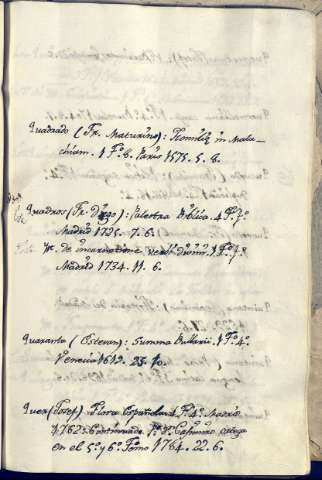 Quadrado (Fr. Maturino): Homiliæ in Mala-
chium. 1 Tº 8. Paris 1575. 5. 8.
Quadros: (Fr. Diego): Palestra Biblica. 4 Tº fº
Madrid 1725. 7. 6.
de incarnatione 1 Tº fº
Madrid 1734. 11. 6.
Quaranta (Estevan): Summa Bullarii. 1 Tº 4º
Venecia 1612. 23.
Quer (Josef) Flora Española 4º Madrid
1762 Continuada
en el 5º y 6º Tomo 1764. 22. 6.